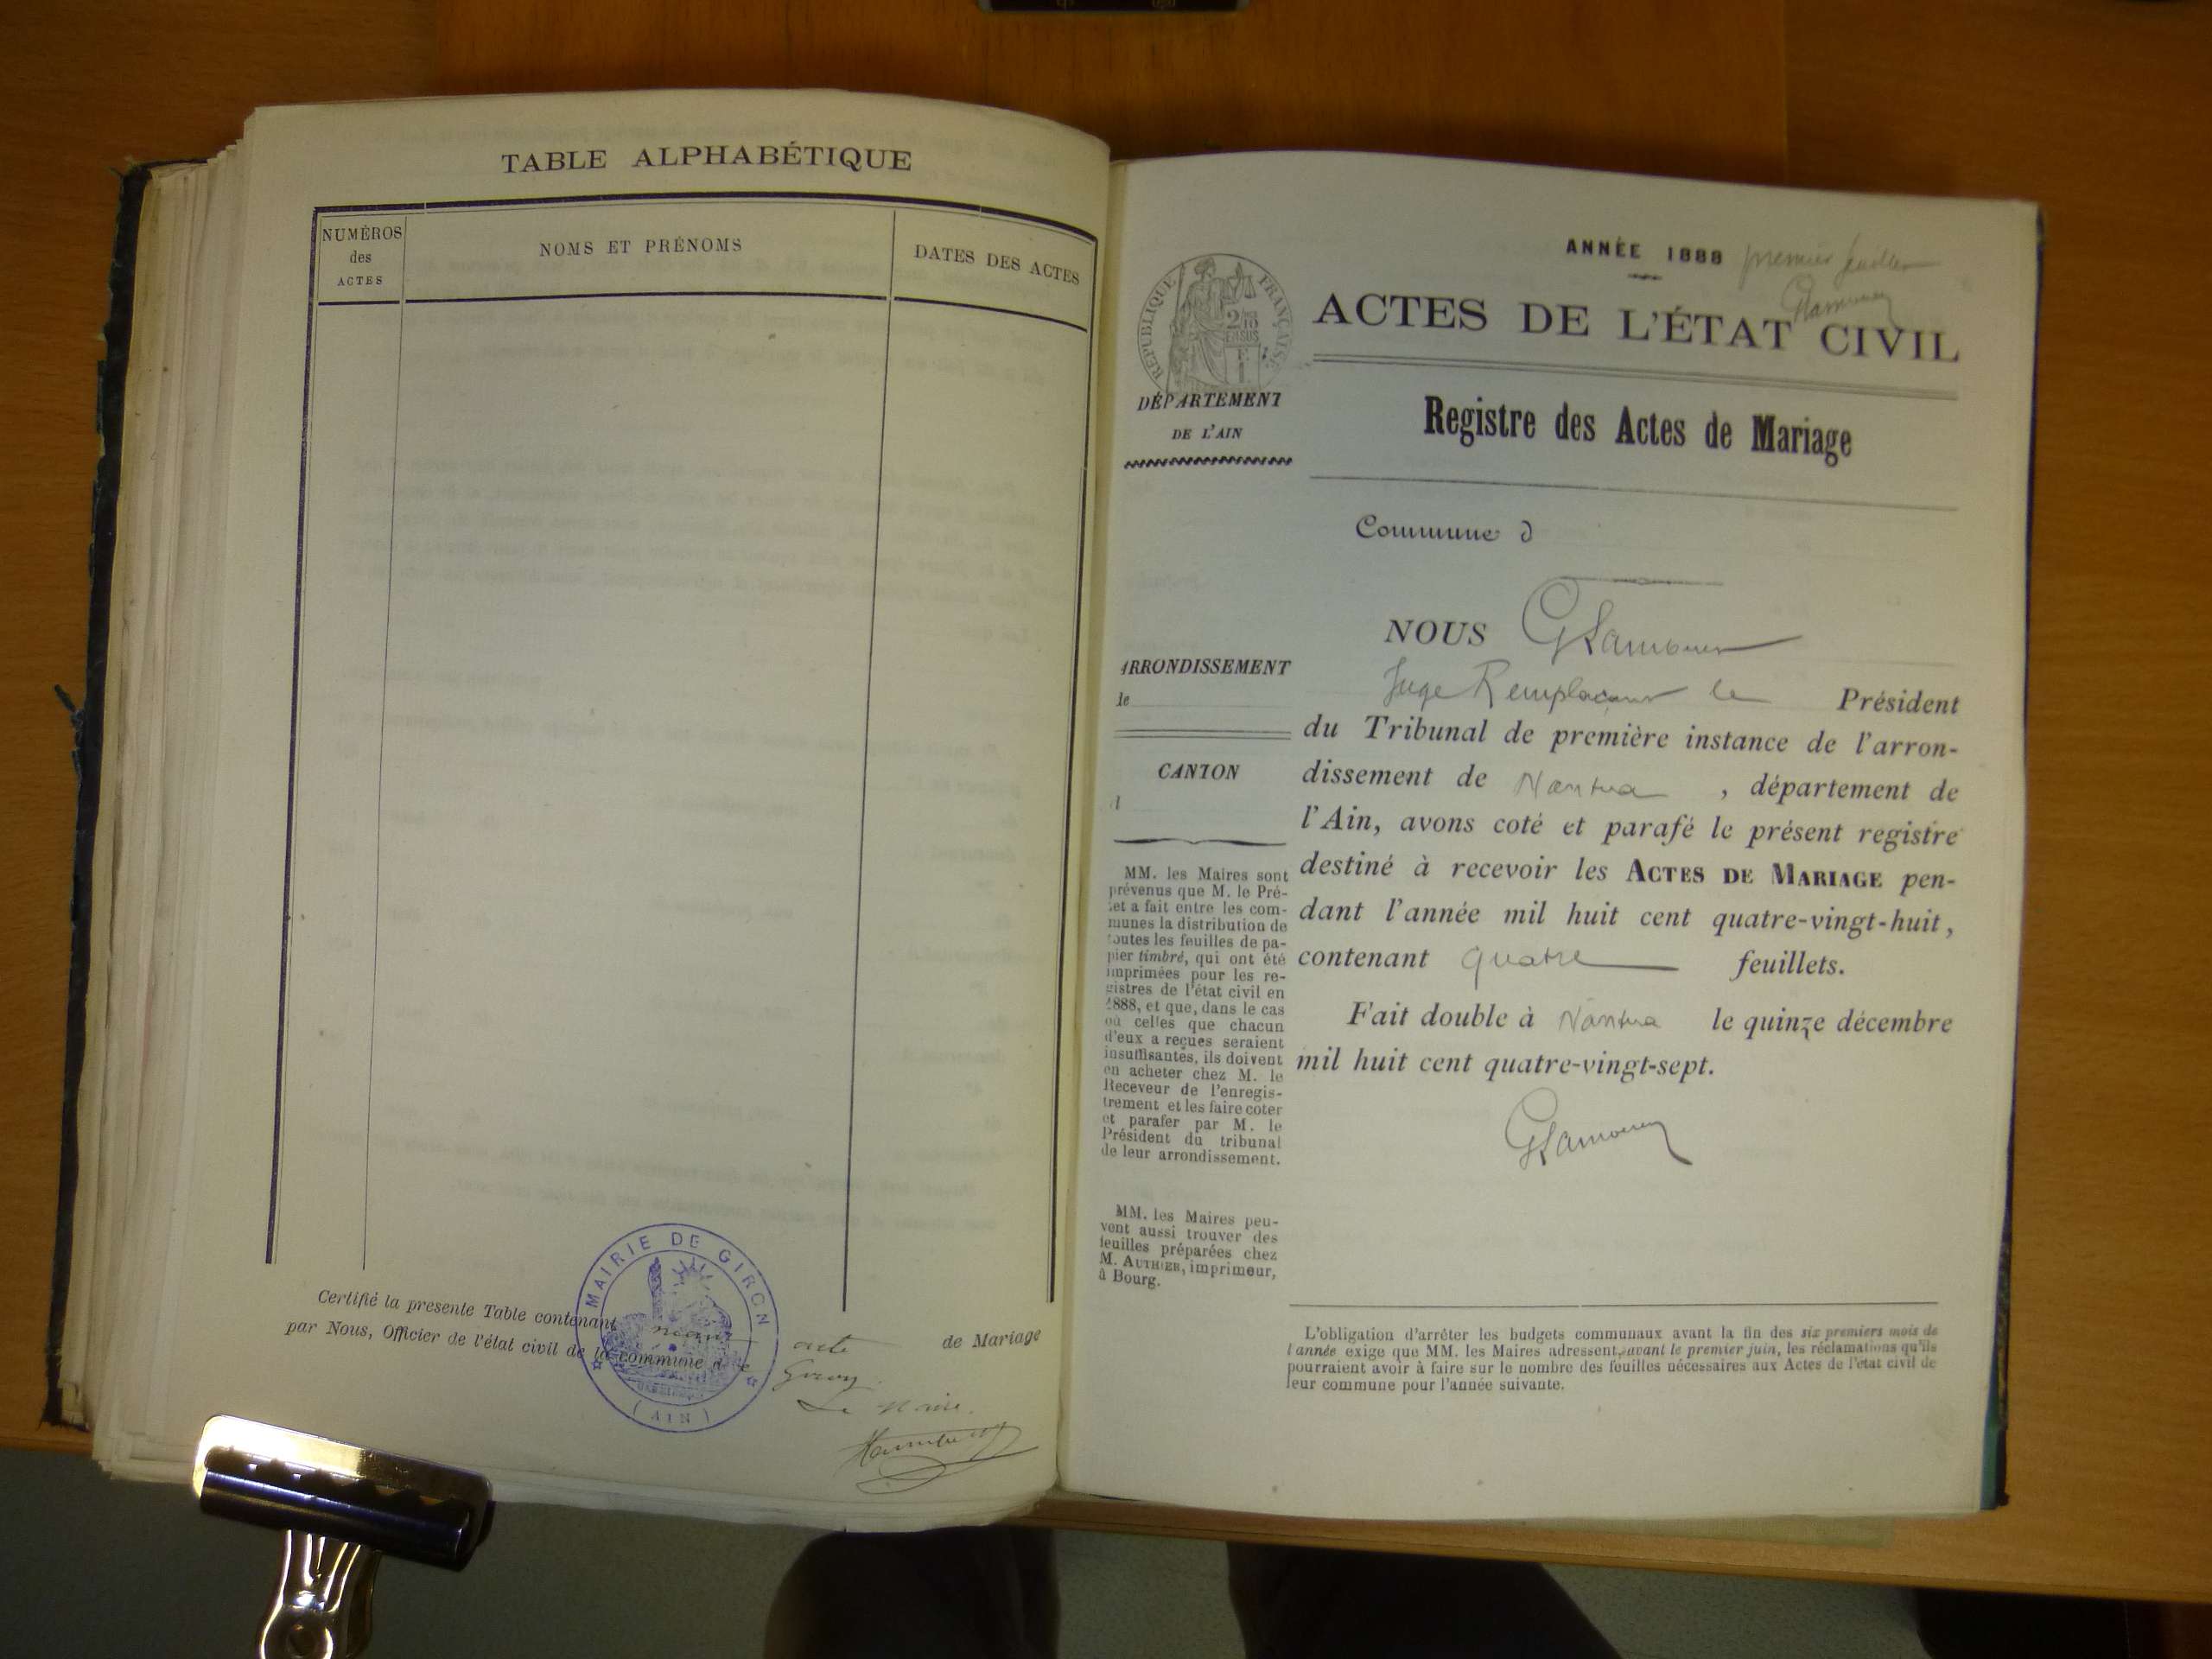 TABLE ALPHABÉTIQUE
NUMÉROS
des
ACTES
NOMS ET PRÉNOMS
DATES DES ACTES
MAIRIE DE GIRON
(AIN)
Certifié la presente Table contenant acte de Mariage
par Nous, Officier de l'état civil de la commune de
Giron
Le Maire
ANNÉE 1888 premier feuillet
ACTES DE L'ÉTAT CIVIL
RÉPUBLIQUE FRANÇAISE
2/10
EN SUS
DÉPARTEMENT
DE L'AIN
Registre des Actes de Mariage
Commune d
ARRONDISSEMENT
de
CANTON
d
MM. les Maires sont
prévenus que M. le Pré-
fet a fait entre les com-
munes la distribution de
toutes les feuilles de pa-
pier timbré, qui ont été
imprimées pour les re-
gistres de l'état civil en
1888, et que, dans le cas
où celles que chacun
d'eux a reçues seraient
insuffisantes, ils doivent
en acheter chez M. le
Receveur de l'enregis-
trement et les faire coter
et parafer par M. le
Président du tribunal
de leur arrondissement.
MM. les Maires peu-
vent aussi trouver des
feuilles préparées chez
M. AUTHIER, imprimeur,
à Bourg.
NOUS
Juge Remplaçant le Président
du Tribunal de première instance de l'arron-
dissement de Nantua, département de
l'Ain, avons coté et parafé le présent registre
destiné à recevoir les ACTES DE MARIAGE pen-
dant l'année mil huit cent quatre-vingt-huit,
contenant quatre feuillets.
Fait double à Nantua le quinze décembre
mil huit cent quatre-vingt-sept.
L'obligation d'arrêter les budgets communaux avant la fin des six premiers mois de
l'année exige que MM. les Maires adressent, avant le premier juin, les réclamations qu'ils
pourraient avoir à faire sur le nombre des feuilles nécessaires aux Actes de l'état civil de
leur commune pour l'année suivante.